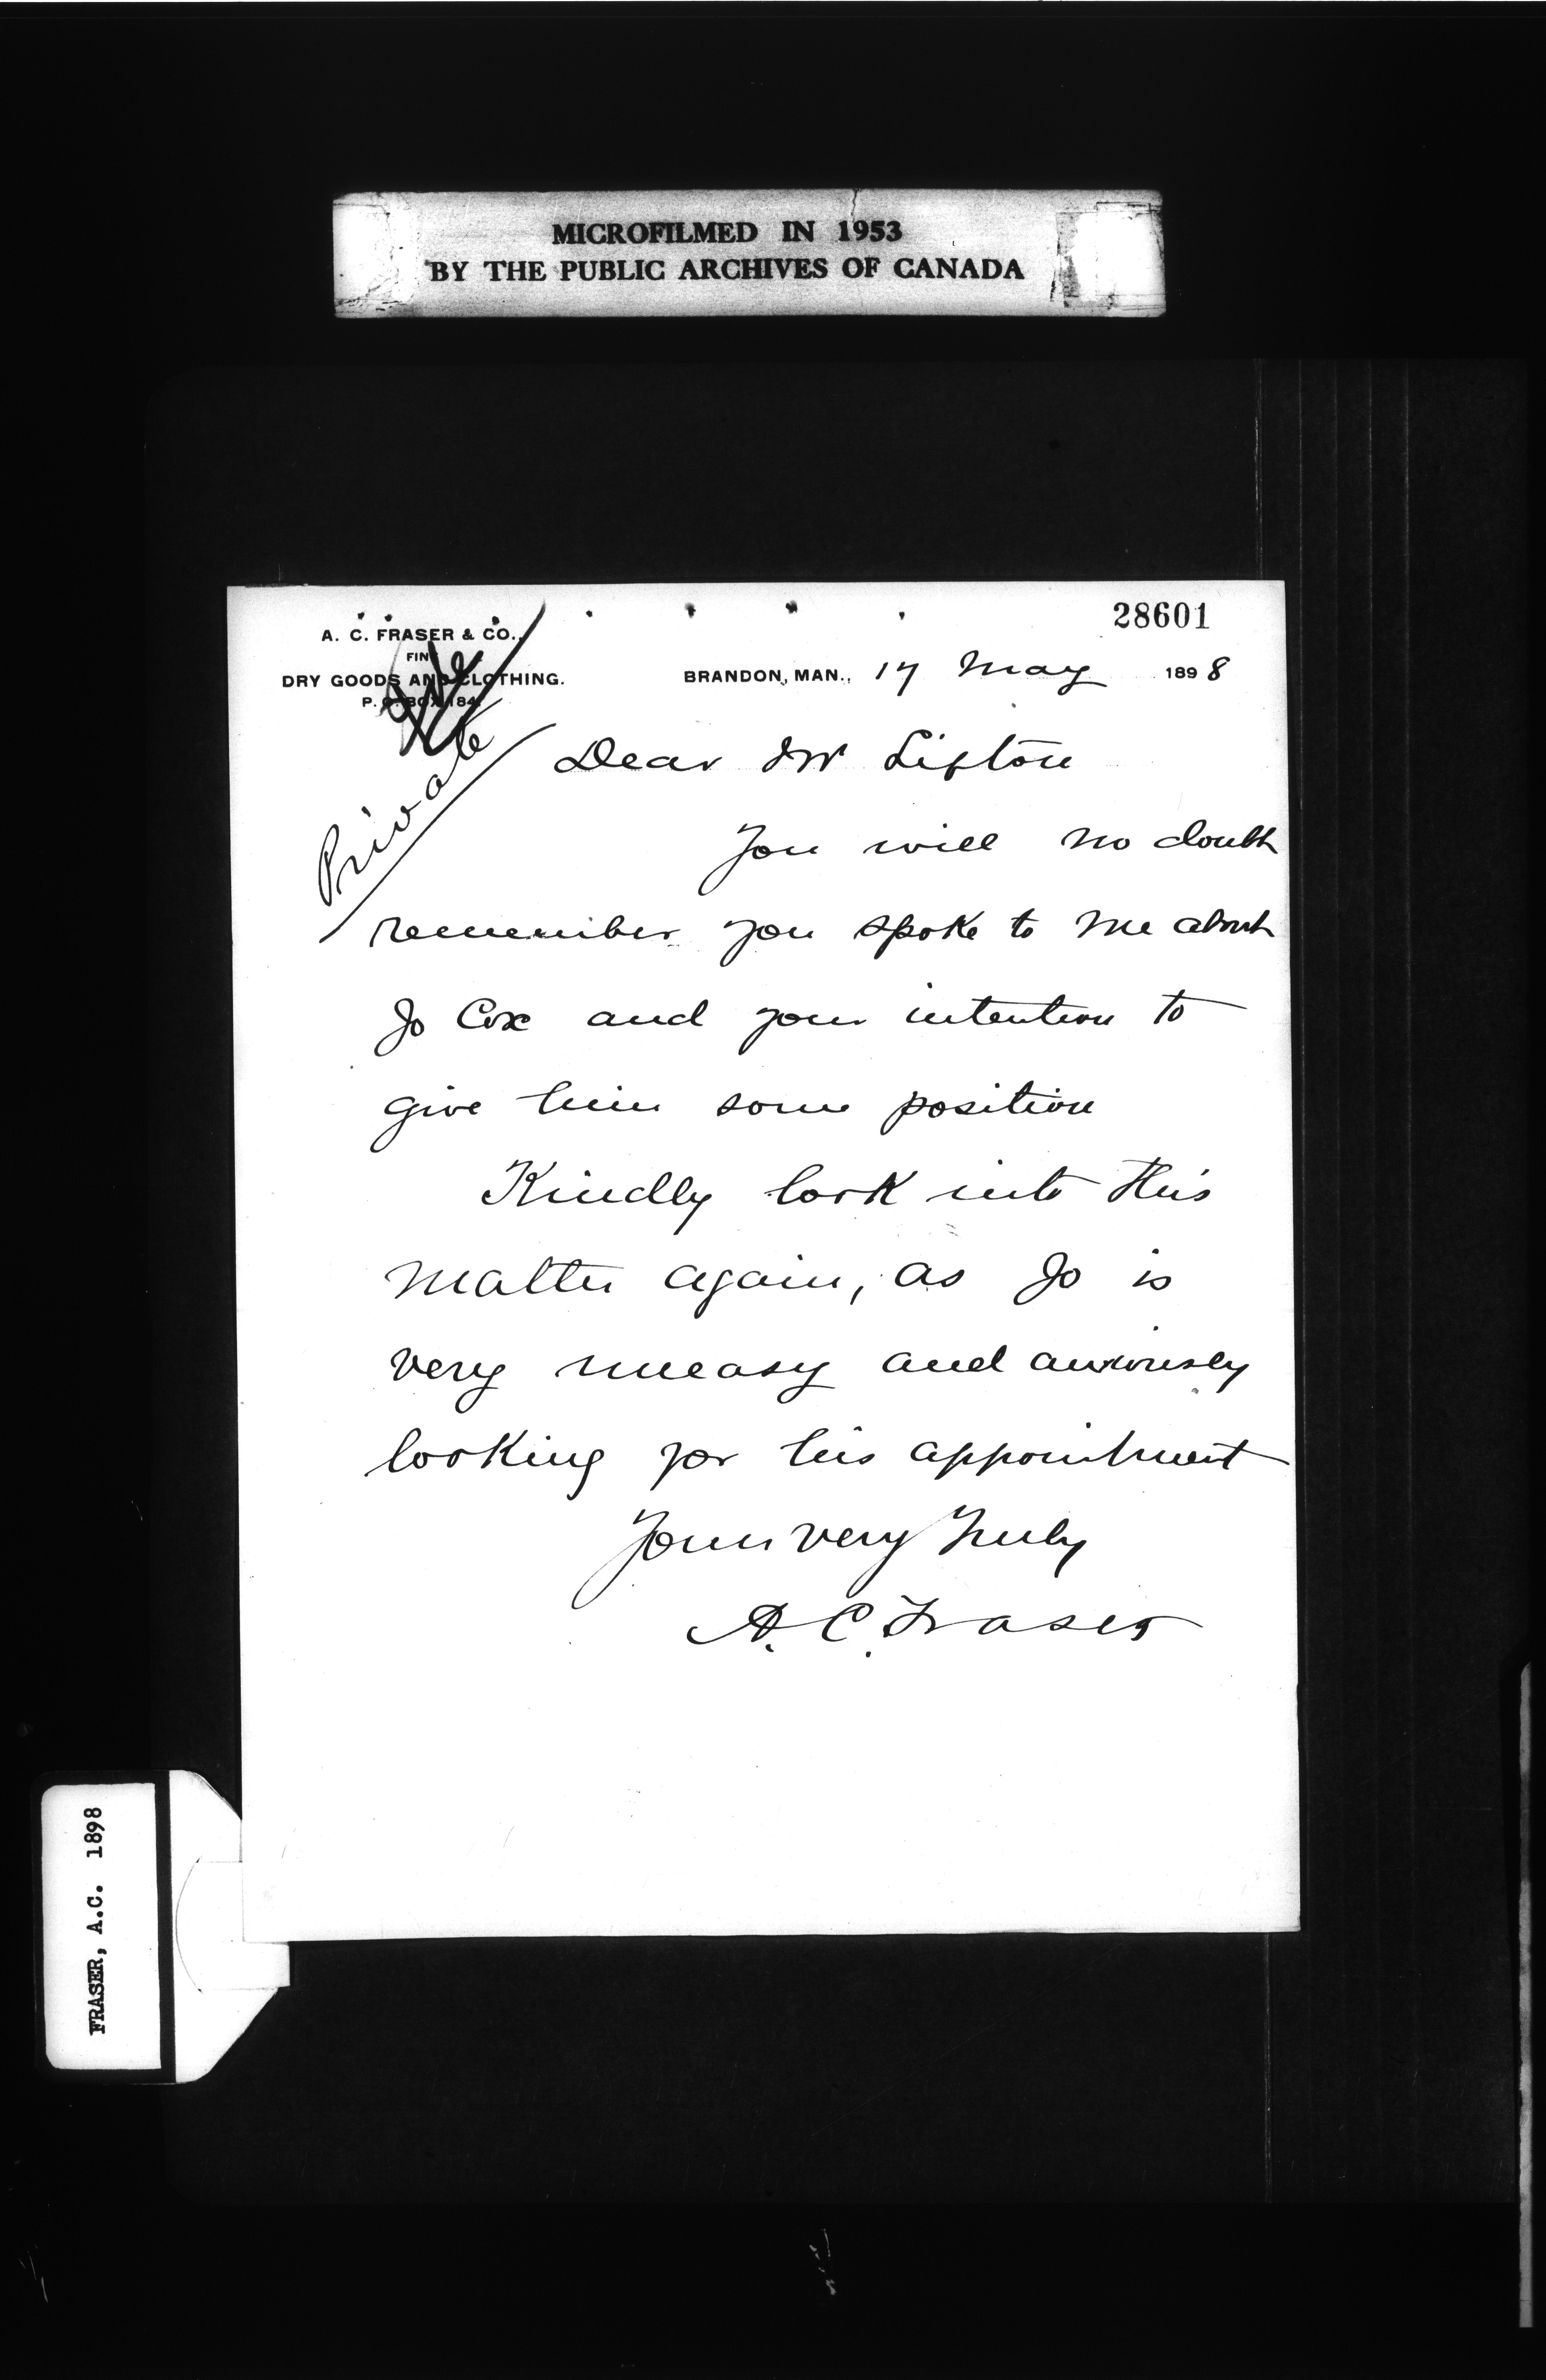 MICROFILMED IN 1953
BY THE PUBLIC ARCHIVES OF CANADA
28601
A. C. FRASER & CO.,
FINE
DRY GOODS AND CLOTHING.
P. O. BOX 184.
BRANDON, MAN., 17 May 1898
Private
Dear Mr Sifton
You will no doubt
remember you spoke to me about
Jo Cox and your intention to
give him some position
Kindly look into this
matter again, as Jo is
very uneasy and anxiously
looking for his appointment
Yours very truly
A. C. Fraser
FRASER, A.C. 1898